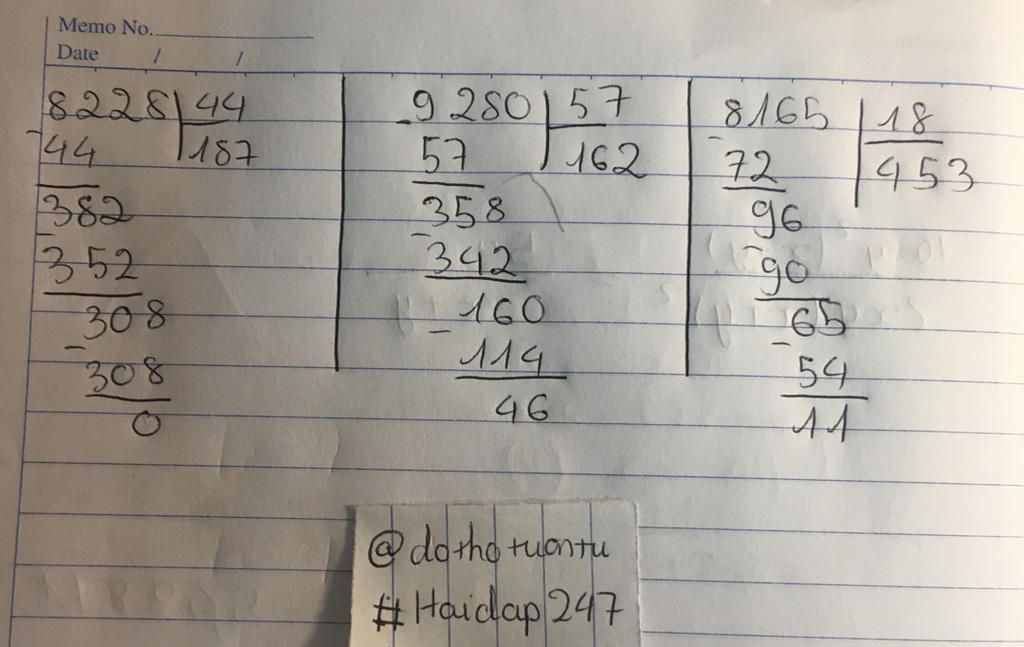 Memo No.
Date / /
8228 44
- 44 187
382
- 352
308
- 308
0
- 9280 57
57 162
358
- 342
160
- 114
46
8165 18
- 72 453
96
- 90
65
- 54
11
@dothotuontu
#Hoidap247